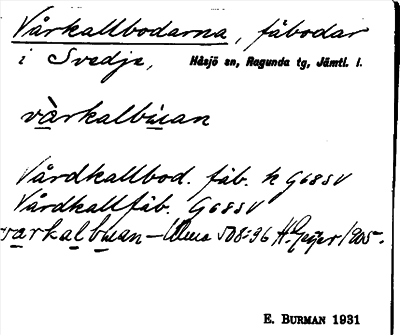 Vårkallbodarna, fäbodar
i Svedje, Håsjö sn, Ragunda tg, Jämtl. l.
vàrkalbúan
Vårdkallbod. fäb. h G68SV
Vårdkallfäb. G68SV
varkalbuan – 508:36 H. Geijer 1905.
E. BURMAN 1931